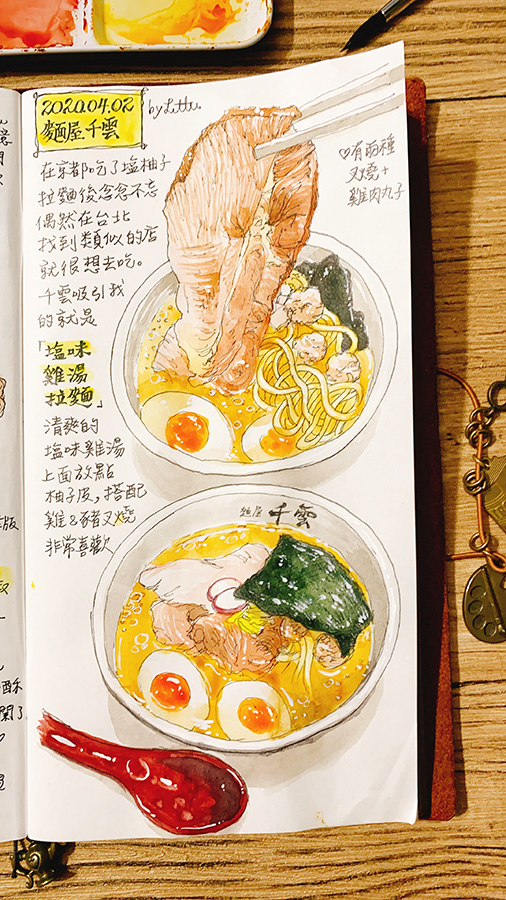 2020.04.02
麵屋千雲
by Lttu
在京都吃了塩柚子
拉麵後念念不忘
偶然在台北
找到類似的店
就很想去吃。
千雲吸引我
的就是
「塩味
雞湯
拉麵」
清爽的
塩味雞湯
上面放點
柚子皮,搭配
雞&豬叉燒
非常喜歡
♡有兩種
叉燒+
雞肉丸子
麵屋 千雲
版
酥
開了